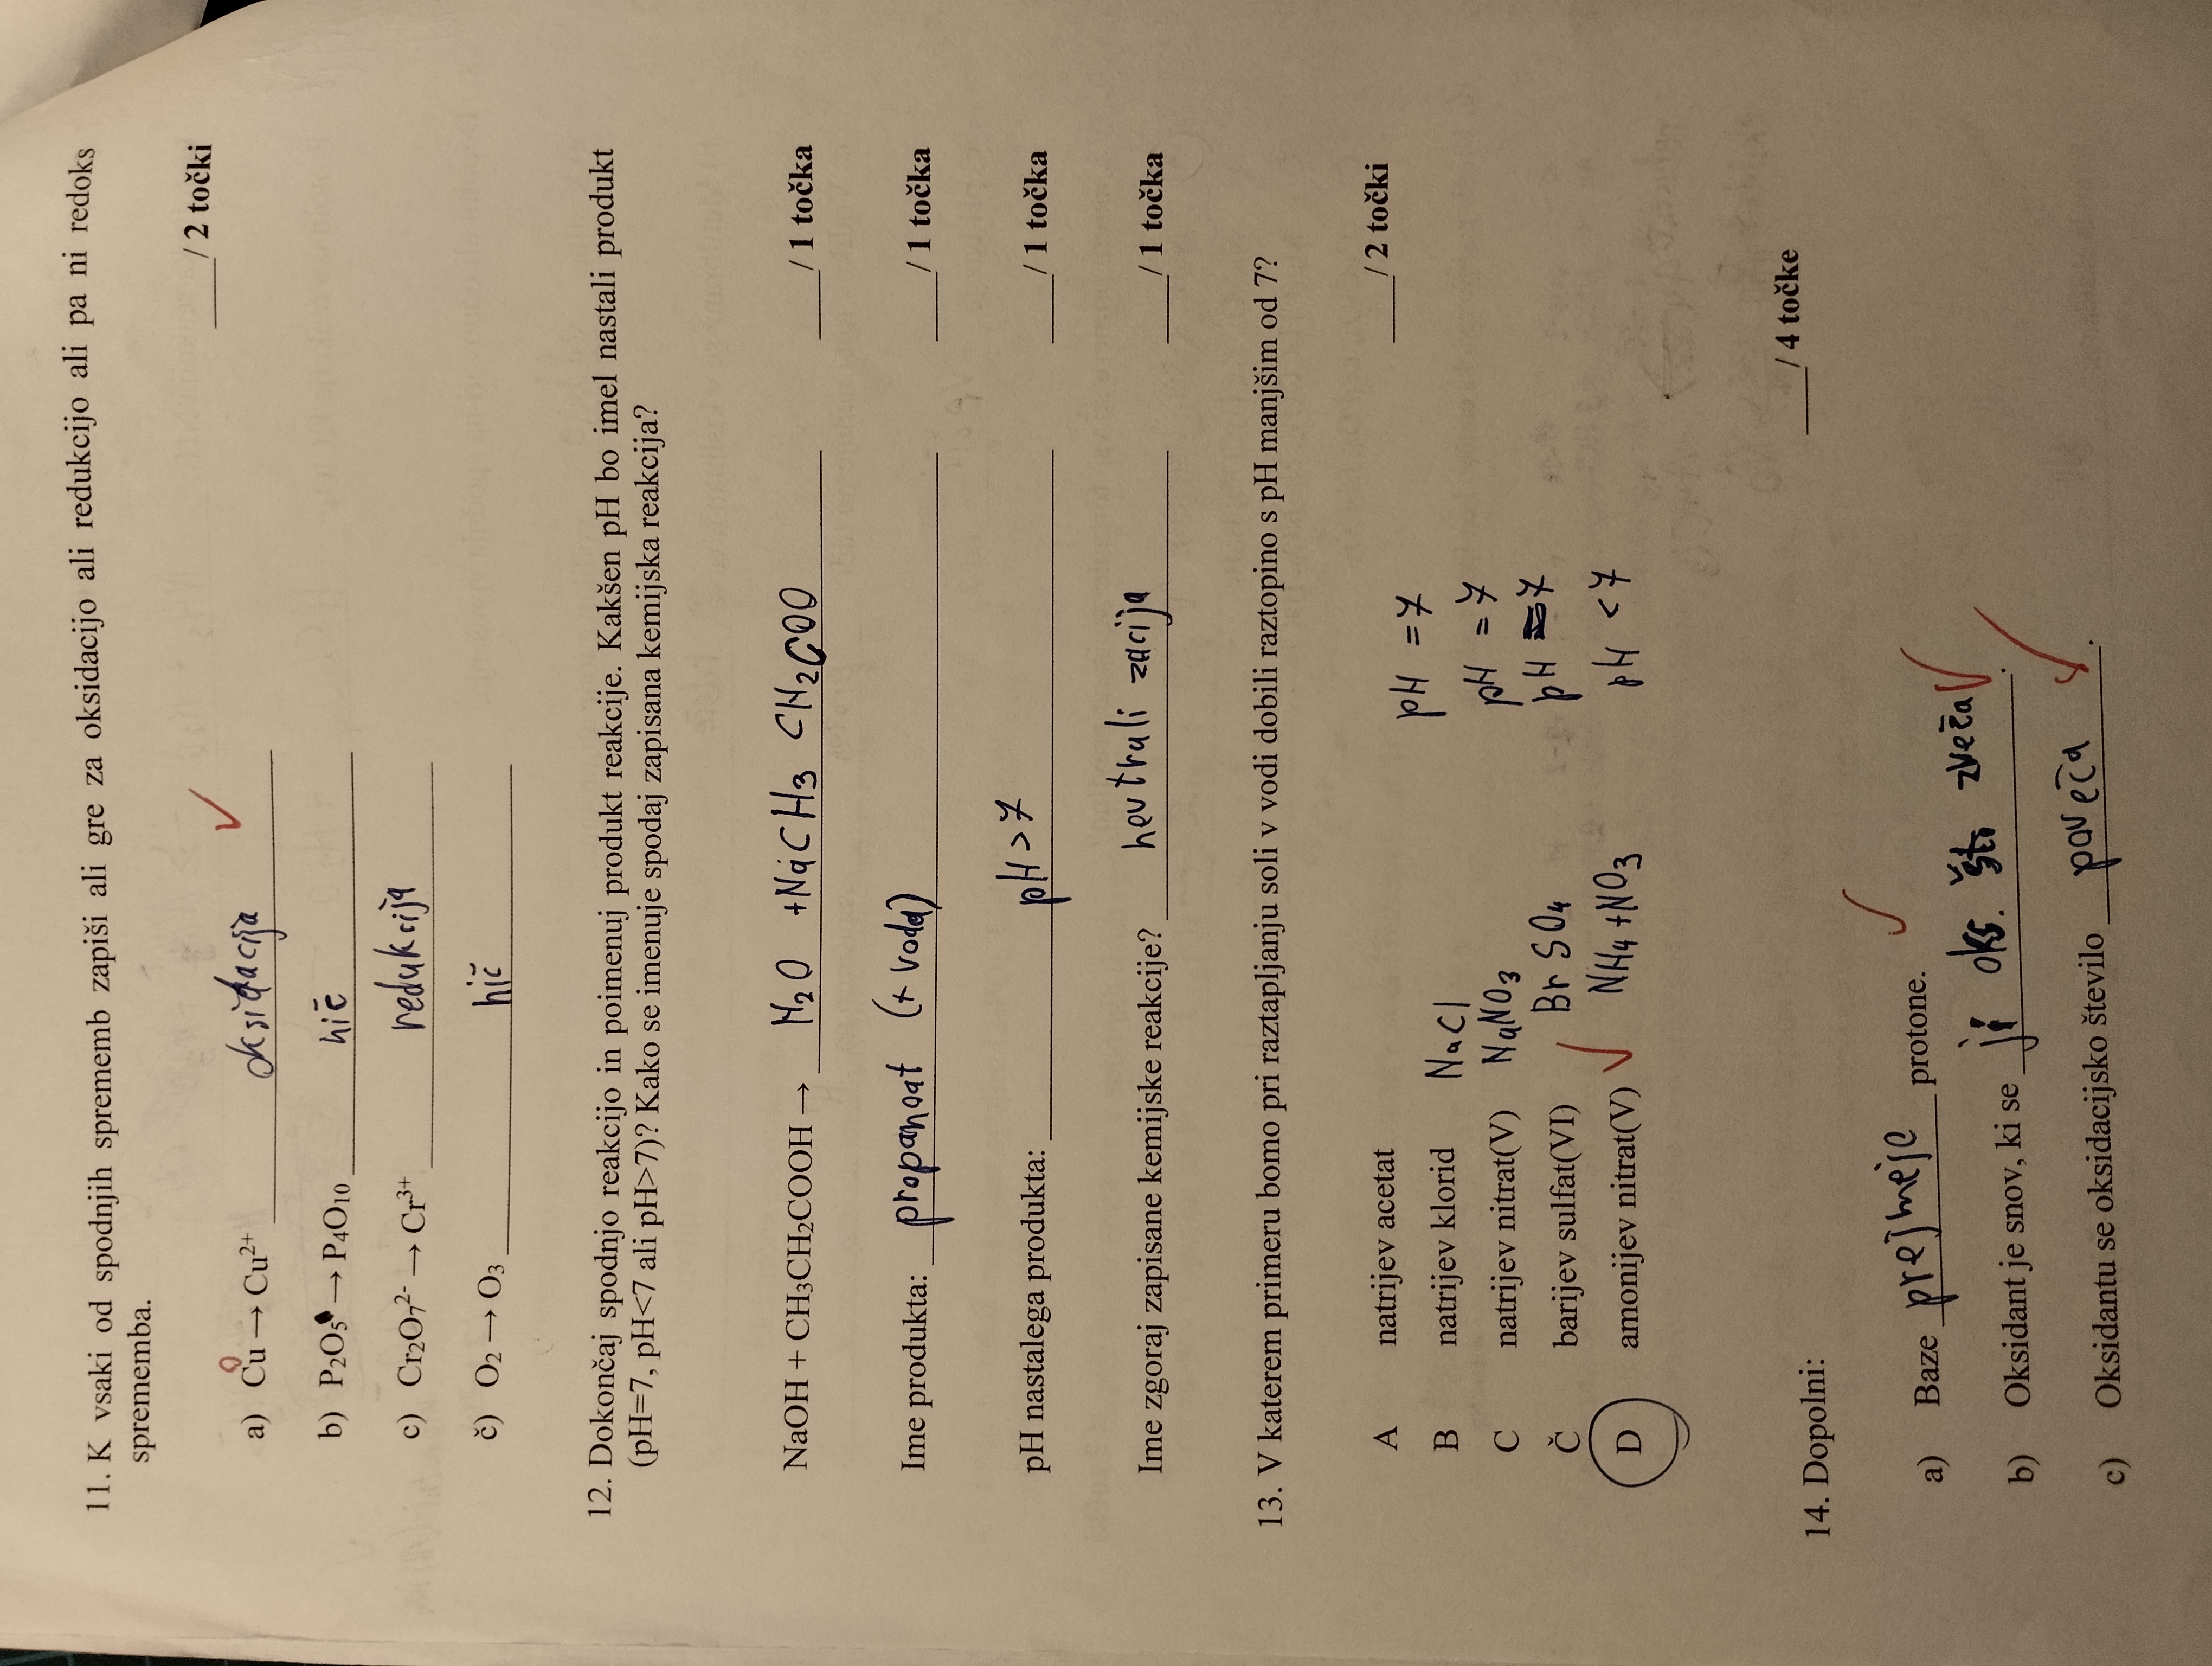 11. K vsaki od spodnjih sprememb zapiši ali gre za oksidacijo ali redukcijo ali pa ni redoks
sprememba.
____/ 2 točki
a) Cu → Cu²⁺ oksidacija
b) P₂O₅ → P₄O₁₀ nič
c) Cr₂O₇²⁻ → Cr³⁺ redukcija
č) O₂ → O₃ nič
12. Dokončaj spodnjo reakcijo in poimenuj produkt reakcije. Kakšen pH bo imel nastali produkt
(pH=7, pH<7 ali pH>7)? Kako se imenuje spodaj zapisana kemijska reakcija?
NaOH + CH₃CH₂COOH → H₂O +NaCH₃ CH₂COO ____/ 1 točka
Ime produkta: propanoat (+ voda) ____/ 1 točka
pH nastalega produkta: pH>7 ____/ 1 točka
Ime zgoraj zapisane kemijske reakcije? nevtralizacija ____/ 1 točka
13. V katerem primeru bomo pri raztapljanju soli v vodi dobili raztopino s pH manjšim od 7?
____/ 2 točki
A natrijev acetat
B natrijev klorid NaCl pH = 7
C natrijev nitrat(V) NaNO₃ pH = 7
Č barijev sulfat(VI) BrSO₄ pH = 7
D amonijev nitrat(V) NH₄+NO₃ pH < 7
____/ 4 točke
14. Dopolni:
a) Baze prejmejo protone.
b) Oksidant je snov, ki se ji oks. št. zveča.
c) Oksidantu se oksidacijsko število poveča.